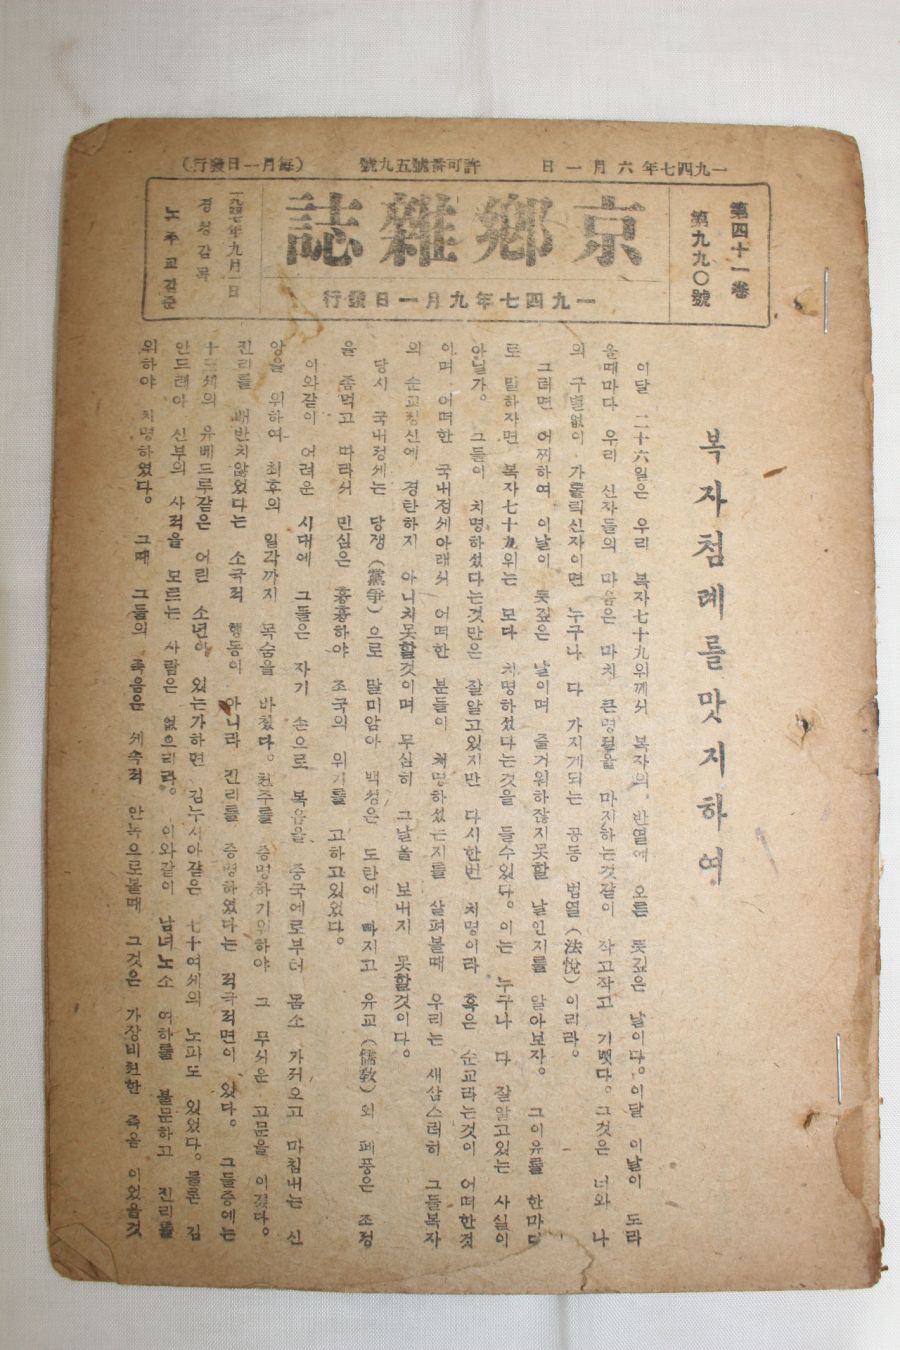 一九四七年六月一日
許可番號五九號
(每月一日發行)
第四十一卷
第九九〇號
京鄕雜誌
一九四七年九月一日發行
一九四七年九月一日
경성감목
노주교감준
복자첨례를맛지하여
이달 二十六일은 우리 복자七十九위께서 복자의 반열에 오른 뜻깊은 날이다. 이달 이날이 도라
올때마다 우리 신자들의 마음은 마치 큰명절을 마지하는것같이 작고작고 기뻣다. 그것은 너와 나
의 구별없이 가톨릭신자이면 누구나 다 가지게되는 공동 법열(法悅)이리라.
그러면 어찌하여 이날이 뜻깊은 날이며 즐거워하잖지못할 날인지를 알아보자. 그이유를 한마디
로 말하자면 복자七十九위는 모다 치명하섯다는것을 들수있다. 이는 누구나 다 잘알고있는 사실이
아닐가. 그들이 치명하섯다는것만은 잘알고있지만 다시한번 치명이라 혹은 순교라는것이 어떠한것
이며 어떠한 국내정세아래서 어떠한 분들이 치명하섯는지를 살펴볼때 우리는 새삼스러히 그들복자
의 순교정신에 경탄하지 아니치못할것이며 무심히 그날을 보내지 못할것이다.
당시 국내정세는 당쟁(黨爭)으로 말미암아 백성은 도탄에 빠지고 유교(儒敎)의 폐풍은 조정
을 좀먹고 따라서 민심은 흉흉하야 조국의 위기를 고하고있었다.
이와같이 어려운 시대에 그들은 자기 손으로 복음을 중국에로부터 몸소 가저오고 마침내는 신
앙을 위하여 최후의 일각까지 목숨을 바첬다. 천주를 증명하기위하야 그 무서운 고문을 이겼다.
진리를 배반치않었다는 소극적 행동이 아니라 진리를 증명하였다는 적극적면이 있다. 그들중에는
十三세의 유베드루같은 어린 소년이 있는가하면 김누시아같은 七十여세의 노파도 있었다. 물론 김
안드레아 신부의 사적을 모르는 사람은 없으리라. 이와같이 남녀노소 여하를 불문하고 진리를
위하야 치명하였다. 그때 그들의 죽음은 세속적 안목으로볼때 그것은 가장비천한 죽음 이었을것